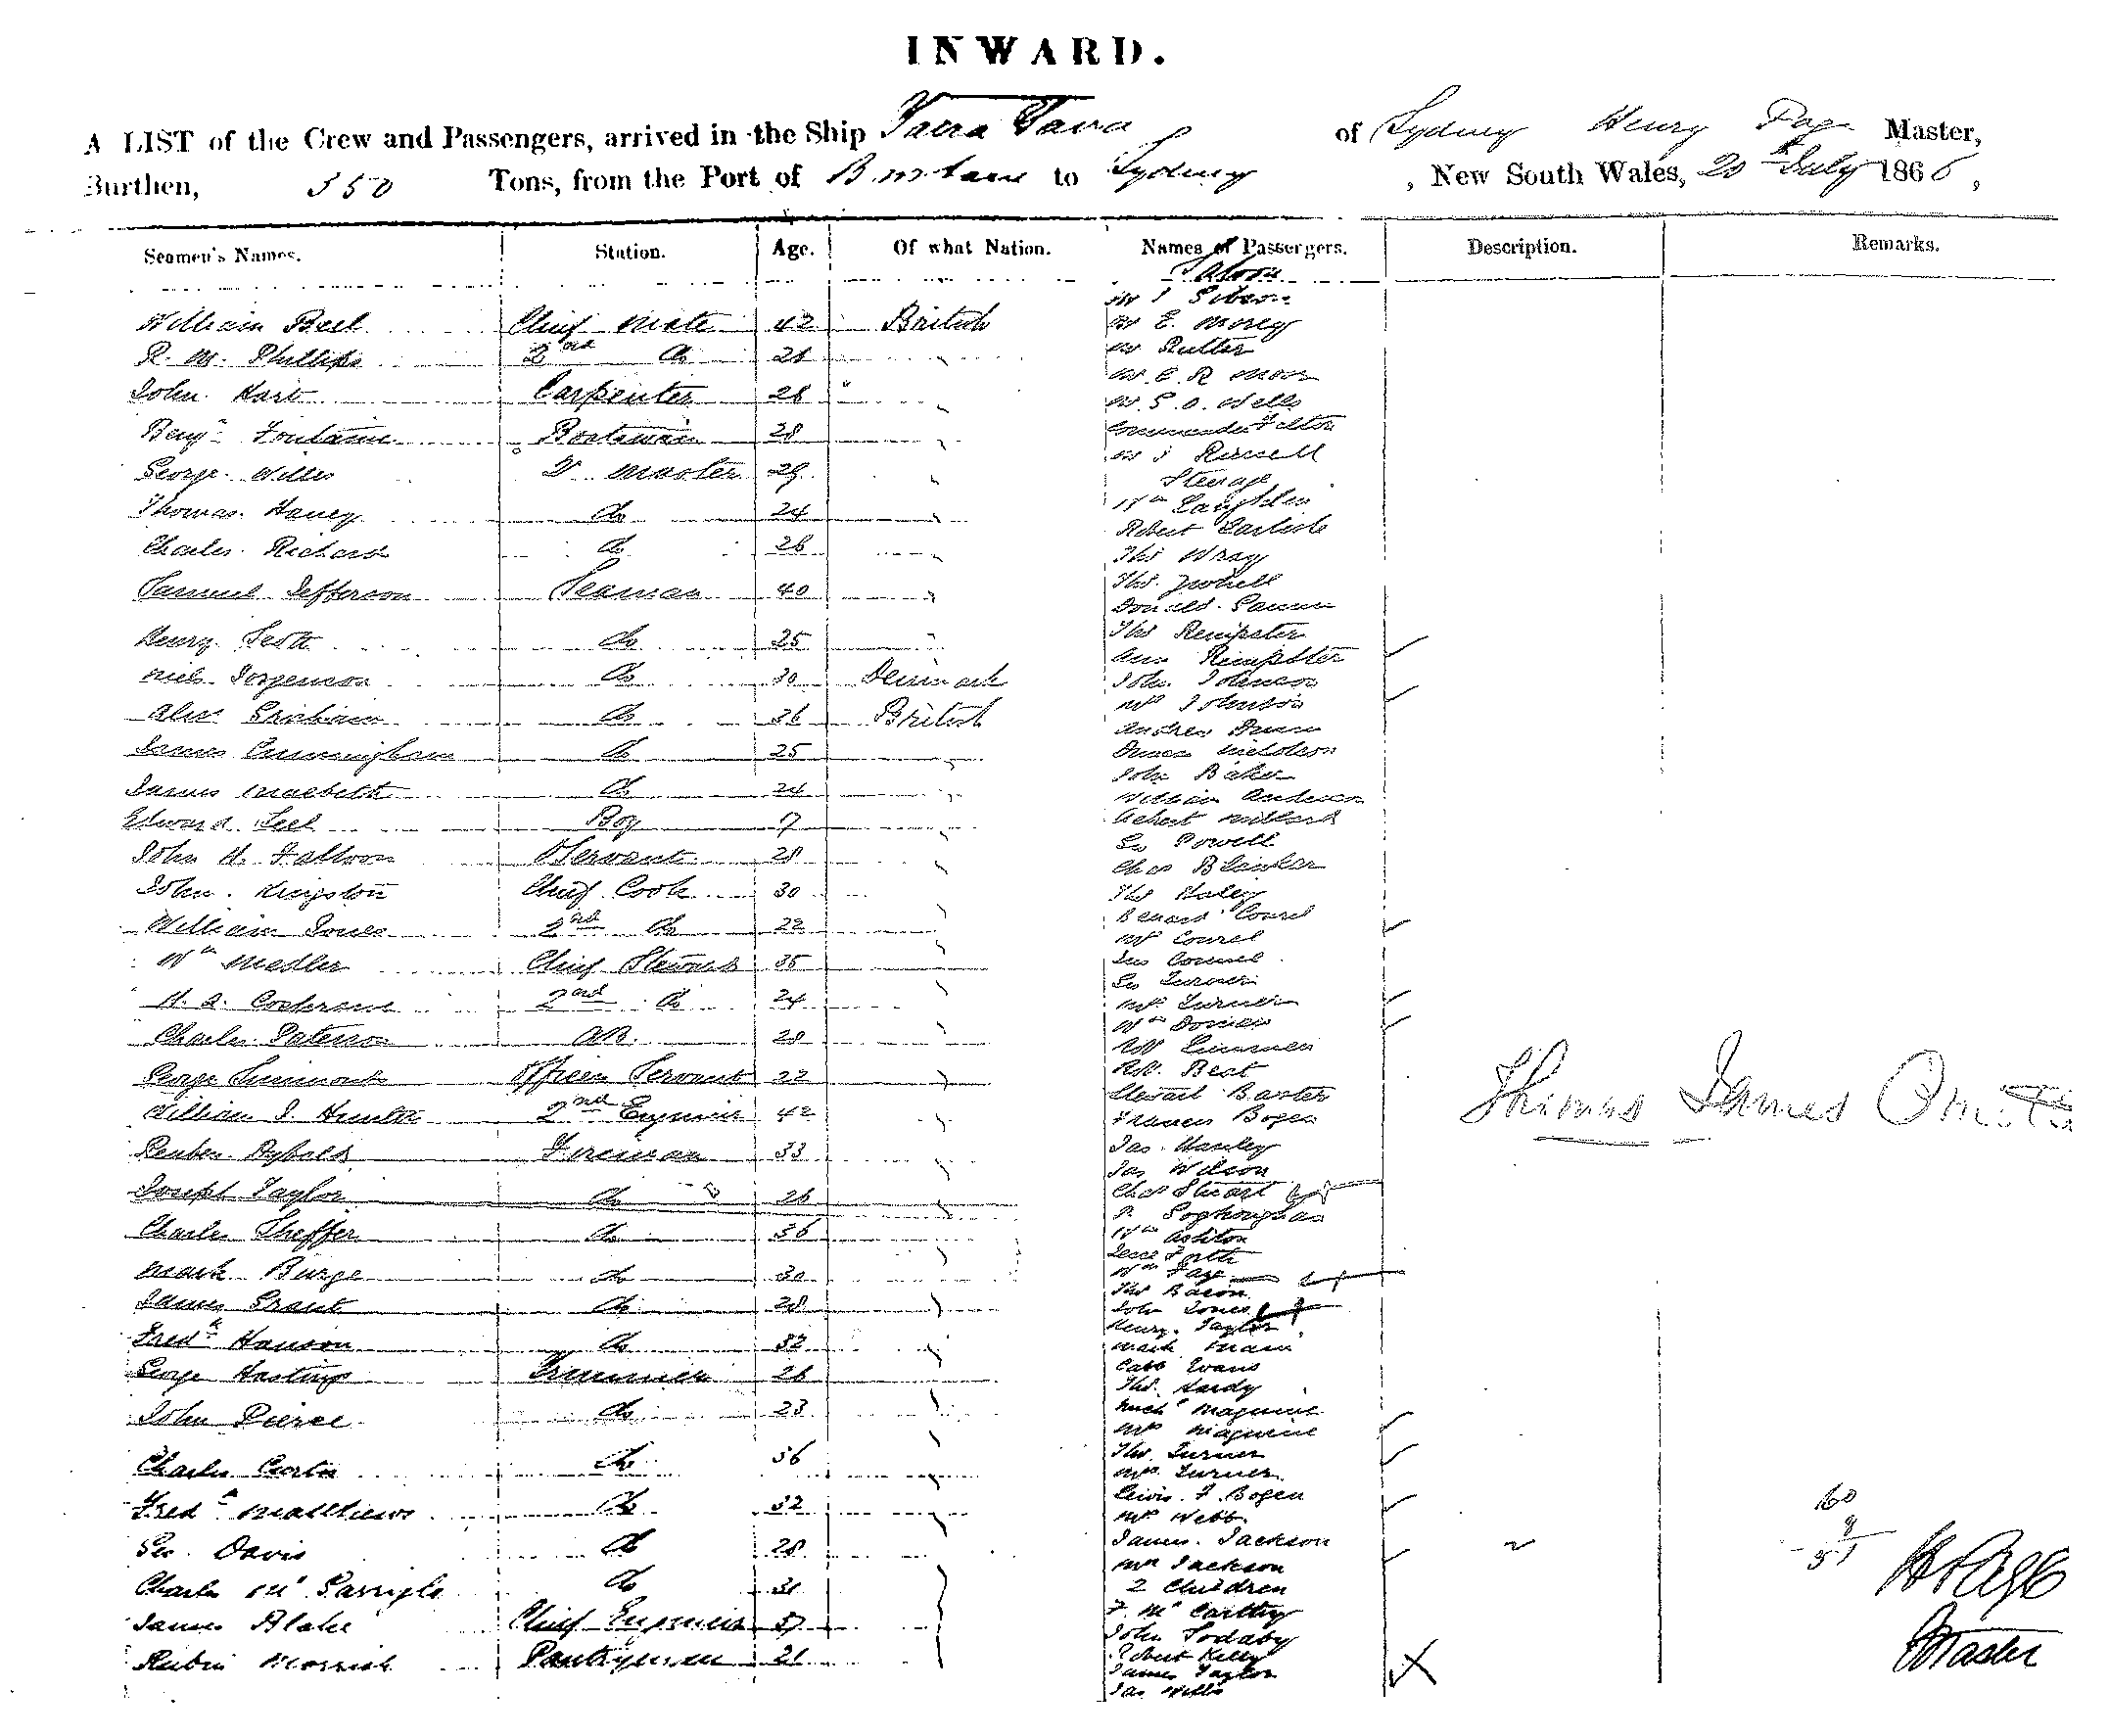 INWARD.
A LIST of the Crew and Passengers, arrived in the Ship Yarra Yarra of Sydney Henry Page Master,
Burthen, 350 Tons, from the Port of Brisbane to Sydney, New South Wales, 20th July 1866,
Seamen's Names. Station. Age. Of what Nation. Names of Passengers. Description. Remarks.
Saloon
William Bell Chief Mate 42 British
R. M. Phillips 2nd Do 28
John Hart Carpenter 28 "
Benjn Fontaine Boatswain 28
George Willis Q Master 29
Thomas Haney Do 24
Charles Richards Do 26
Samuel Jefferson Seaman 40
Henry Scott Do 25
Niels Jorgenson Do 30 Denmark
Alexr Graham Do 36 British
James Cunningham Do 25
James Macbeth Do 24
Edward Teel Boy 17
John H. Falloon Servant 28
John Kingston Chief Cook 30
William Jones 2nd Do 22
Wm Medler Chief Steward 35
H. A. Cochrane 2nd Do 24
Charles Paterson AB. 28
George Officers Servant 22
William J. Hunter 2nd Engineer 42
Reuben Fireman 33
Joseph Taylor Do 26
Charles Sheffer Do 36
Mark Burge Do 30
James Grant Do 28
Fredk Hanson Do 32
George Hastings Trimmer 26
John Pierce Do 23
Charles Curtis Do 36
Fredk Matthews Do 32
Geo. Davis Do 28
Charles Mc Do 31
James Blake Chief Engineer 37
Rubin Pantryman 21
Mr J Gibson
Mr E. Morey
Mr Rutter
Mr C. R.
Mr S. O. Wells
Commander
Mr J Russell
Steerage
Wm
Robert Carlisle
Thos Wray
Thos.
Donald
Thos Rempster
Ann Rempster
John Johnson
Mrs Johnson
Andrew
John Baker
William Anderson
Geo Powell
Chas
Thos Haley
Geo Turner
Mrs Turner
Wm
Robt
Robt. Beat
Stewart Baxter
Francis Bogen
Jas Hanley
Jas Wilson
Chas Stuart
Wm Ashton
Wm Page
Thos Bacon
John Jones
Henry Taylor
Mark Main
Capt Evans
Thos. Hardy
Michl Maguire
Mrs Maguire
Thos Turner
Mrs Turner
Lewis F. Bogen
Mrs Webb
James Jackson
Mrs Jackson
2 Children
F. McCarthy
John Sodaby
Robert Kelly
James Taylor
Jas Willis
Thomas James
60
9
51
H Page
Master